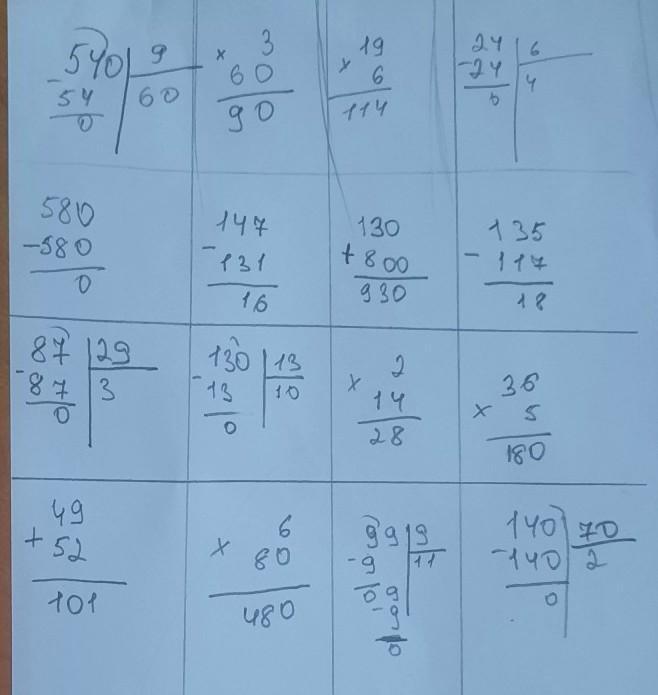 540 9
-54 60
0
× 3
60
90
× 19
6
114
24 6
-24 4
0
580
-580
0
147
-131
16
130
+800
930
135
-117
18
87 29
-87 3
0
130 13
-13 10
0
× 2
14
28
36
× 5
180
49
+52
101
× 6
80
480
99 9
-9 11
09
-9
0
140 70
-140 2
0